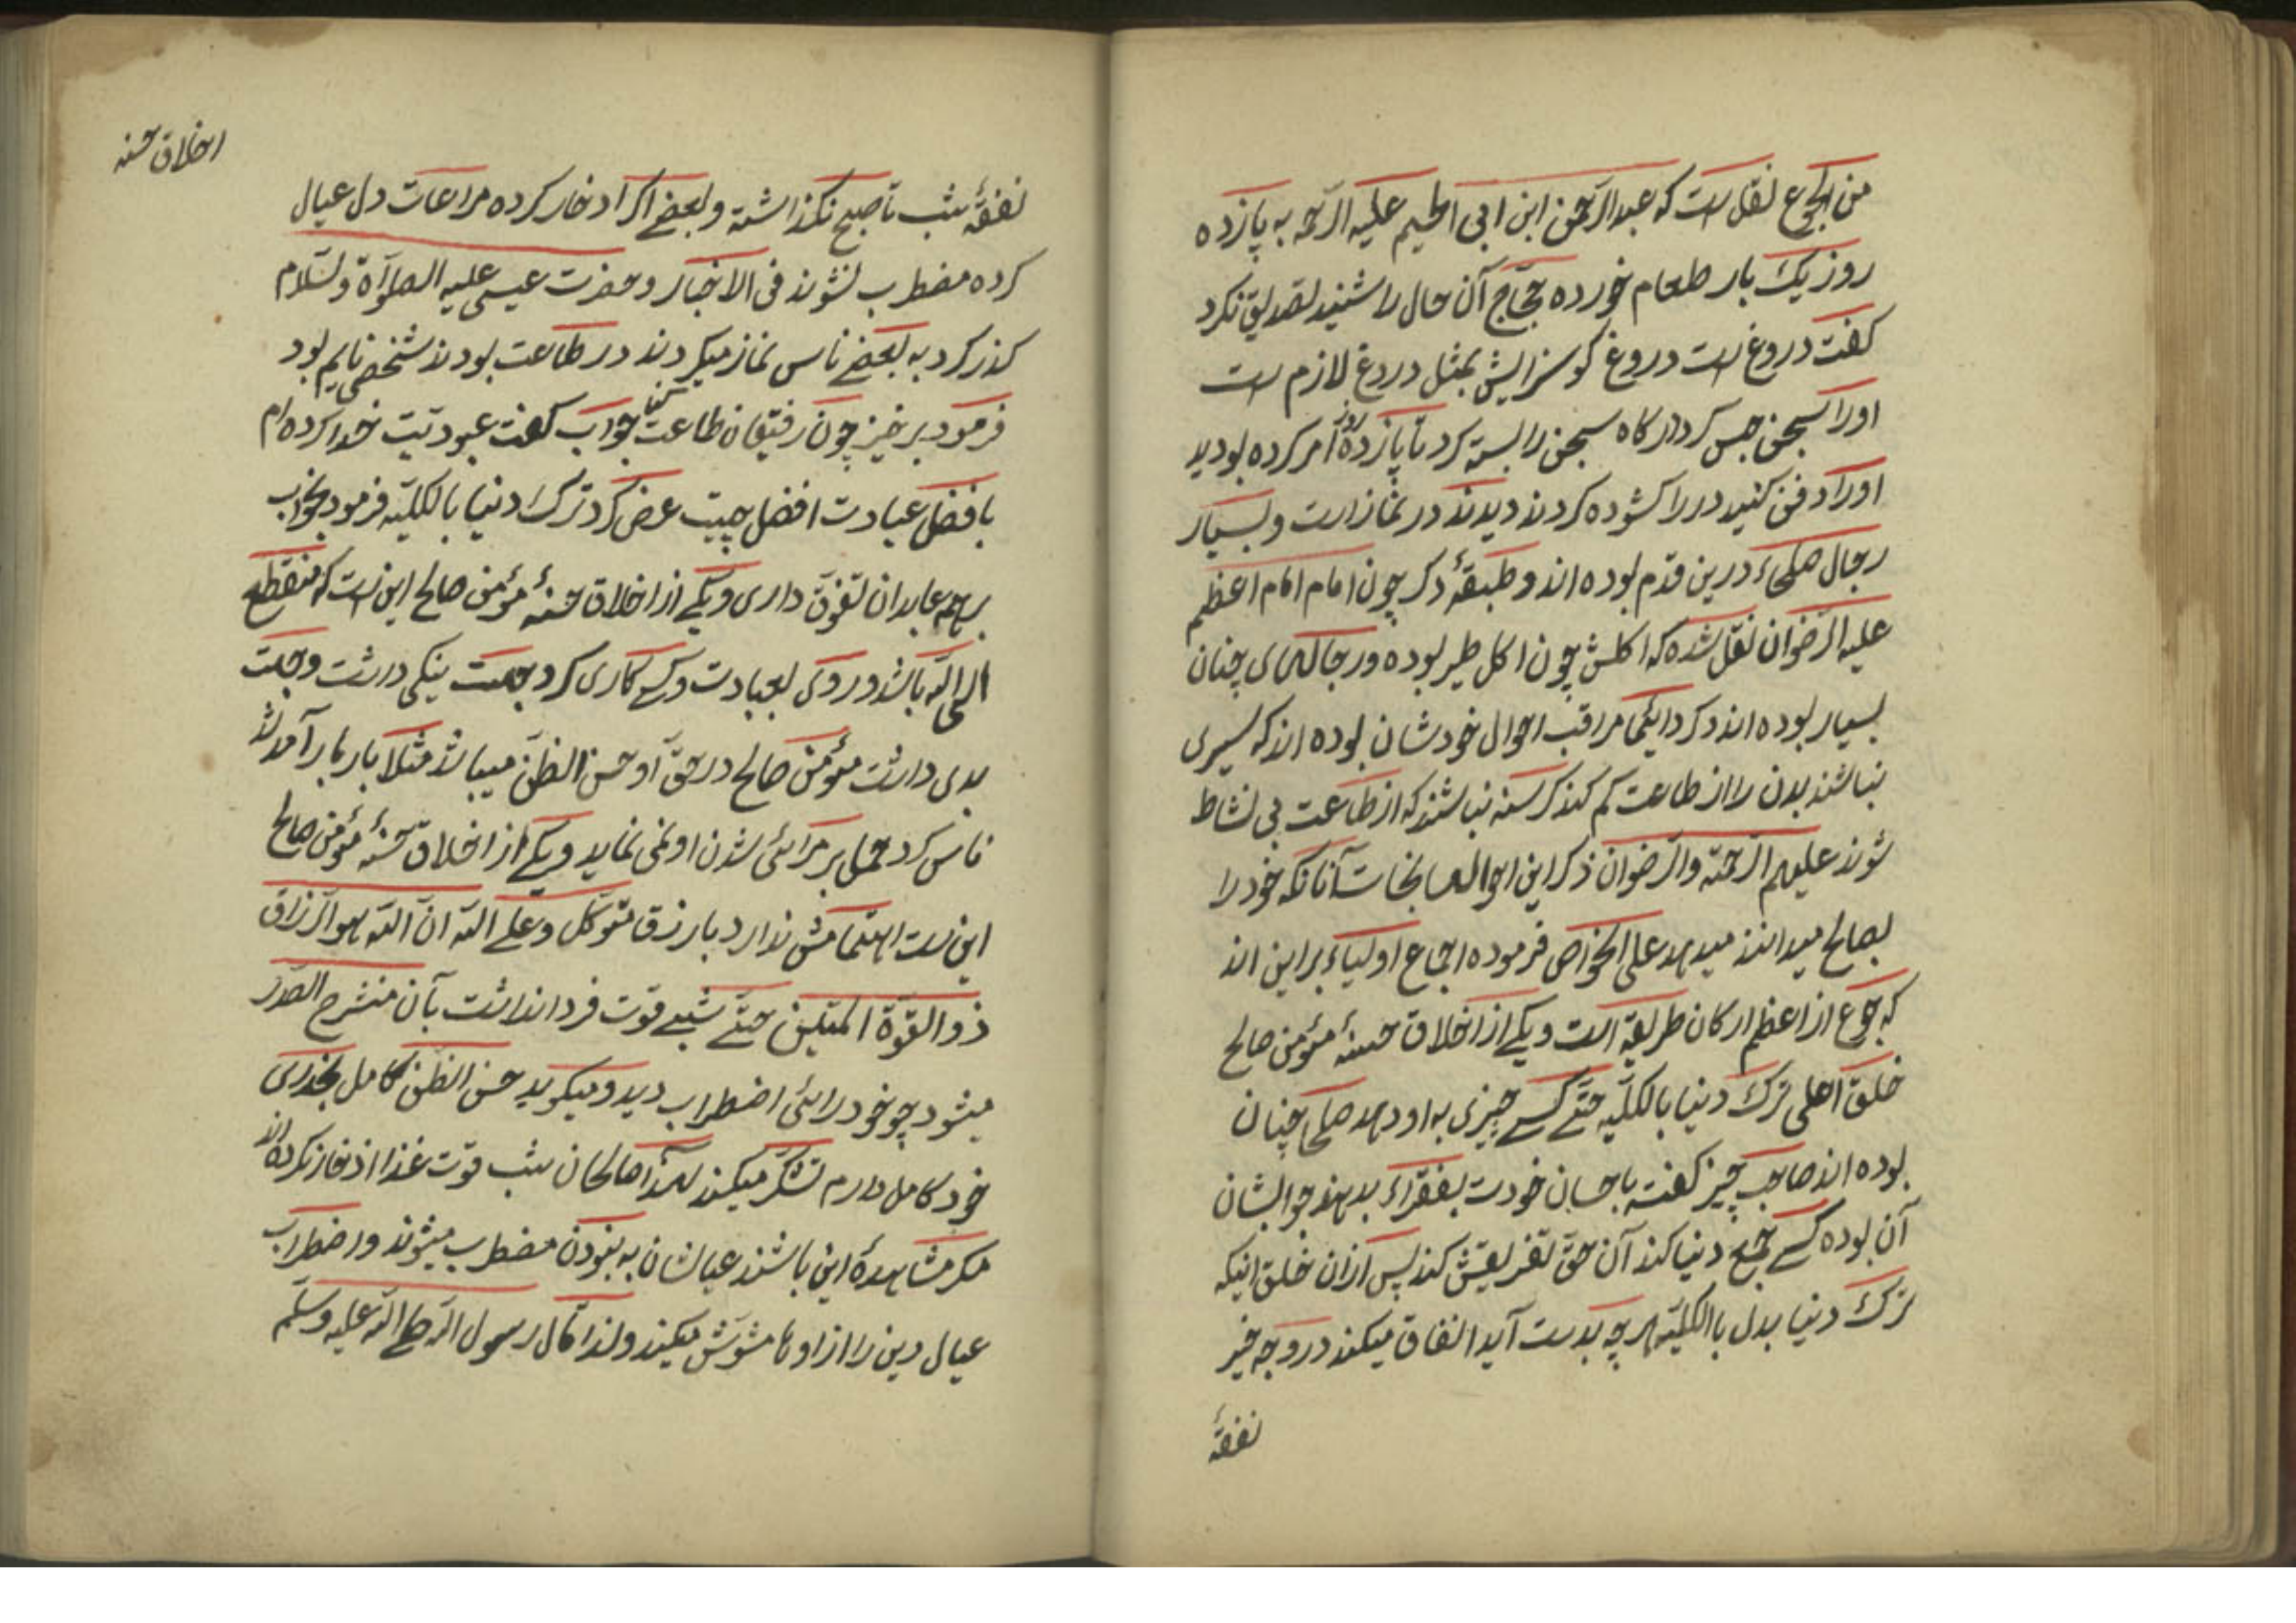 من الجوع نقل است که عبد الرحمن ابن ابی الحلیم علیه الرحمه به پازده
روز یک بار طعام خورده حجاج آن حال را شنید تصدیق نکرد
کفت دروغ است دروغ کو سزایش بمثل دروغ لازم است
اورا بسجن حبس کرد درکاه سجن را بسته کرد تا پازده روز امر کرده بودید
اورا دفن کنید در را کشوده کردند دیدند در نماز است و بسیار
رجال صلحاء درین قدم بوده اند و طبقهٔ دکر چون امام امام اعظم
علیه الرضوان نقل شده که اکلش چون اکل طیر بوده و رجالهای چنان
بسیار بوده اند دکر دایما مراقب احوال خودشان بوده اند که سیری
نباشند بدن را از طاعت کم کند کرسنه نباشند که از طاعت بی نشاط
شوند علیهم الرحمة والرضوان ذکر این احوالها بخاست آنانکه خود را
بصالح میدانند میدهد علی الخواص فرموده اجماع اولیاء بر این اند
که جوع از اعظم ارکان طریقه است و یکی از اخلاق حسنهٔ مؤمن صالح
خلق اهلی ترک دنیا بالکلیّه حتّی کسی چیزی به او دهد صلحا چنان
بوده اند صاحب چیز کفته باحسان خودت بفقراء بدهند جوابشان
آن بوده کسی جمع دنیا کند آن حق تفریقش کند پس ازان خلق اینکه
ترک دنیا بدل باالکلیّه هرچه بدست آید انفاق میکند در وجه خیر
نفقهٔ
اخلاق حسنه
نفقهٔ شب تا صبح نکذاشته و بعضی اکر ادخار کرده مراعات دل عیال
کرده مضطرب نشوند فی الاخبار و حضرت عیسی علیه الصلوٰة و لسّلام
کذر کرد به بعضی ناس نماز میکردند در طاعت بودند شخصی نایم بود
فرمود برخیز چون رفیقان طاعت کن جواب کفت عبودتیت خدا کرده ام
بافضل عبادت افضل چیست عرض کرد ترک دنیا بالکلیّه فرمود بخواب
بر همه عابدان تفوّق داری و یکی از اخلاق حسنهٔ مؤمن صالح این است که منقطع
الی الله باشد و روی بعبادت و کسی کاری کرد جهت نیکی درشت و جهت
بدی داشت مؤمن صالح در حقّ او حسن الظنّ میباشد مثلا بار بار آمد شد
ناس کرد حمل بر مرائی شدن او نمی نماید و یکی از اخلاق حسنهٔ مؤمن صالح
این است اهتمامش ندارد بارزق متوکّل و علی الله ان الله هو الرزاق
ذو القوّة المتین حتّی شبی قوت فردا نداشت بآن منشرح الصدر
میشود چو خود را بی اضطراب دید و میکوید حسن الظن کامل بخدای
خود کامل دارم تشکر میکند لهذا صالحان شب قوت غذا ادخار نکرده اند
مکر مشاهدهٔ این باشند عیالشان به نبودن مضطرب میشوند و اضطراب
عیال دین را از اوها مشوّش میکند ولذا قال رسول الله صلی الله علیه وسلم